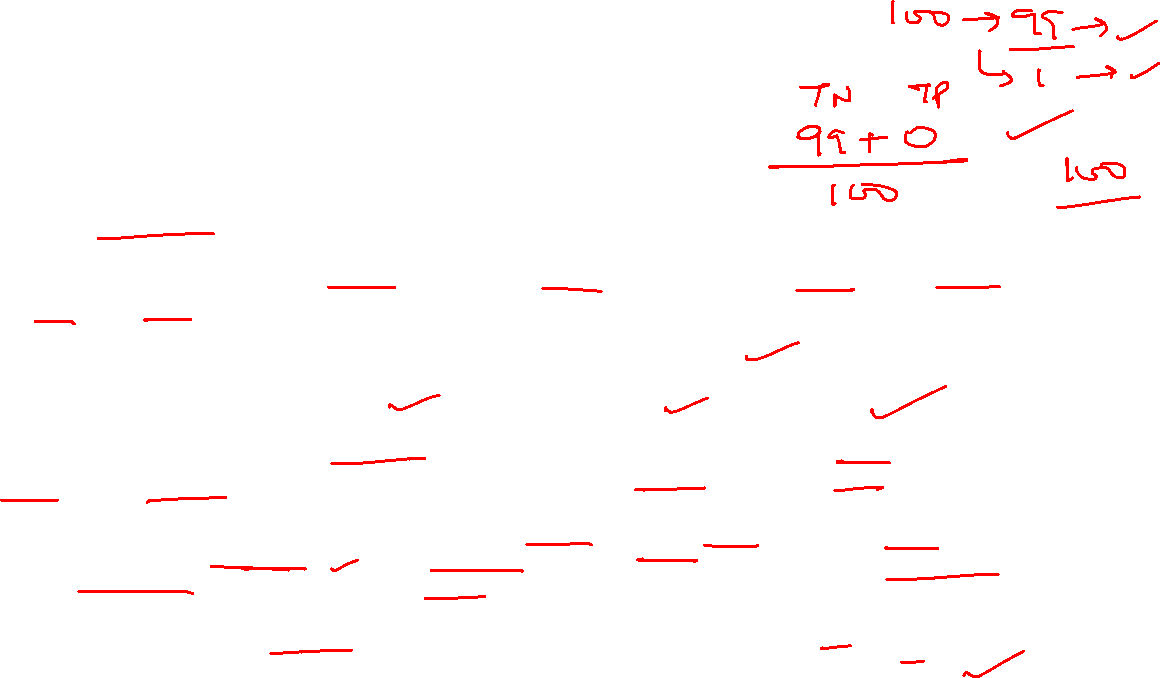 100 → 99 → ✓
↳ 1 → ✓
TN TP
99 + 0 ✓
100
100